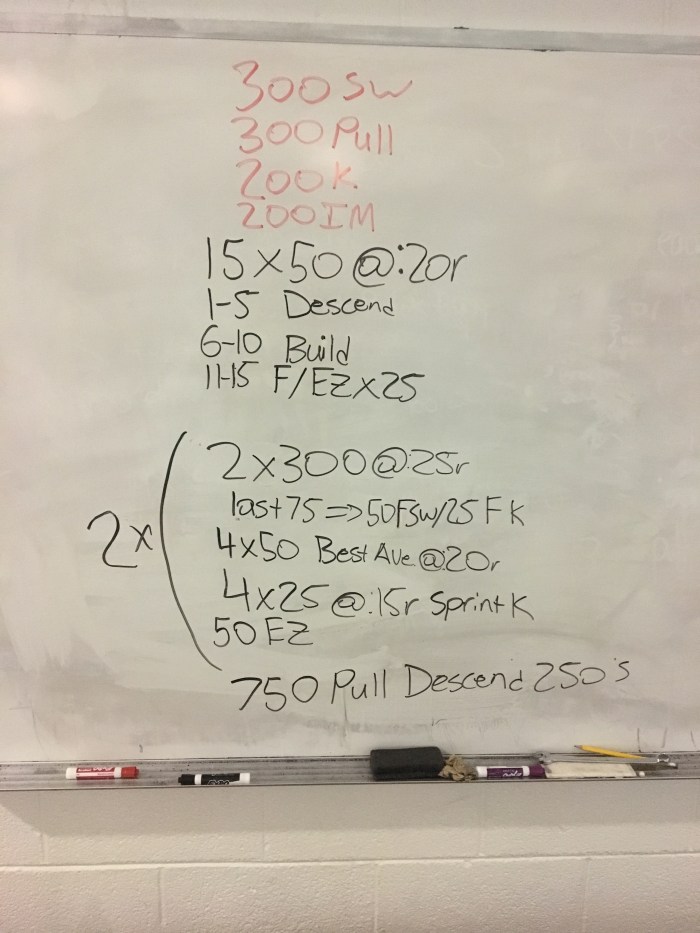 300 SW
300 Pull
200 K.
200 IM
15x50 @:20r
1-5 Descend
6-10 Build
11-15 F/EZ x25
2x
2x300@:25r
last 75 => 50FSW/25 F K
4x50 Best Ave @:20r
4x25 @:15r Sprint K
50 EZ
750 Pull Descend 250's